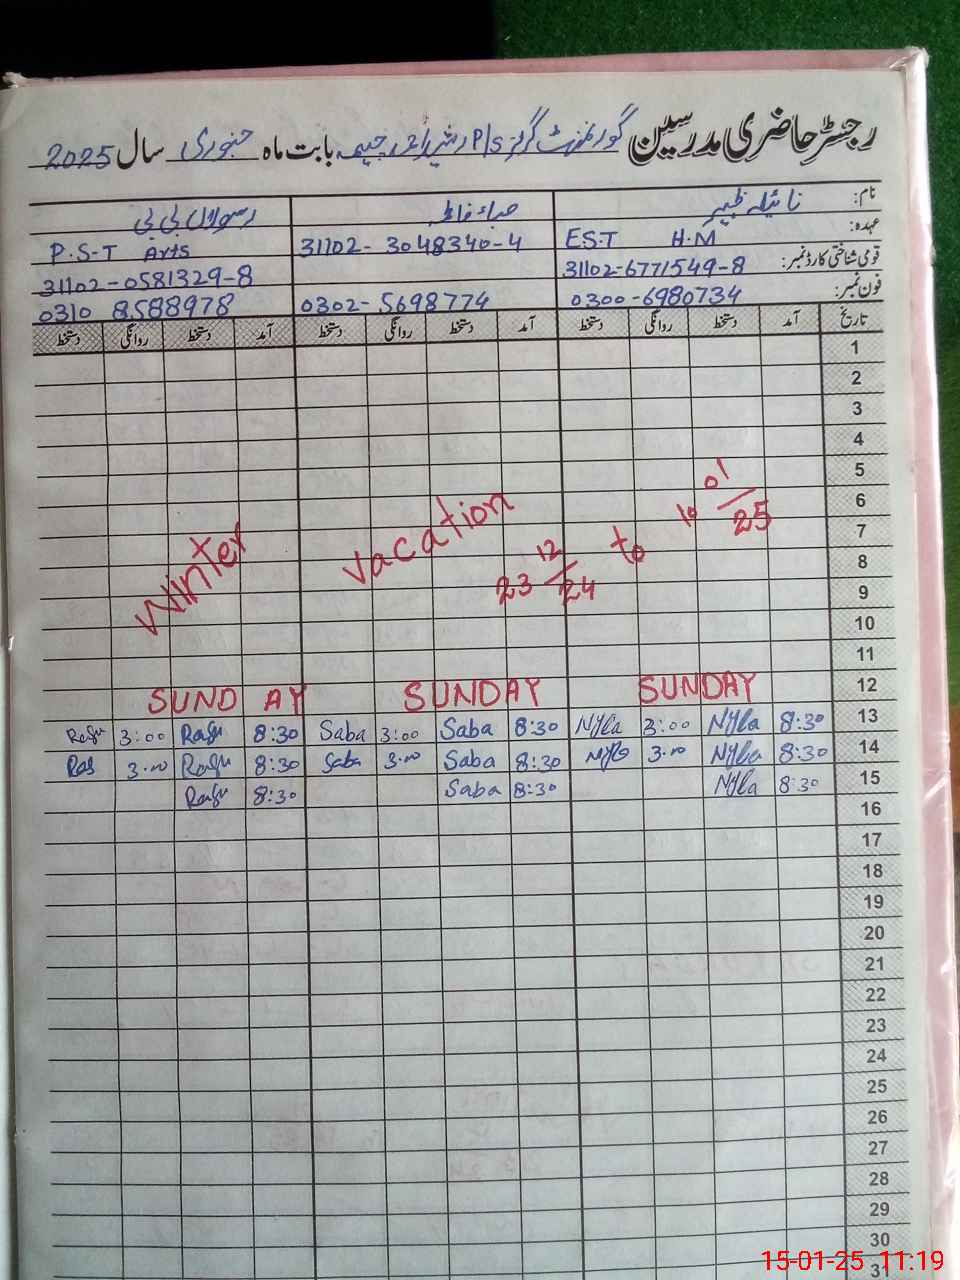 رجسٹر حاضری مدرسین گورنمنٹ گرلز P/S بابت ماہ جنوری سال 2025
نام: نائیلہ ظہیر صباء فاطمہ رسولاں بی بی
عہدہ: EST H.M P.S-T Arts
قومی شناختی کارڈ نمبر: 31102-6771549-8 31102-3048340-4 31102-0581329-8
فون نمبر: 0300-6980734 0302-5698774 0310 8588978
تاریخ آمد دستخط روانگی دستخط آمد دستخط روانگی دستخط آمد دستخط روانگی دستخط
1
2
3
4
5
6
7
8
9
10
11
Winter Vacation 23 12/24 to 10 01/25
12 SUNDAY SUNDAY SUNDAY
13 8:30 Nyla 3:00 Nyla 8:30 Saba 3:00 Saba 8:30 Rasu 3:00 Rasu
14 8:30 Nyla 3:00 Nyla 8:30 Saba 3:00 Saba 8:30 Rasu 3:00 Ras
15 8:30 Nyla 8:30 Saba 8:30 Rasu
16
17
18
19
20
21
22
23
24
25
26
27
28
29
30
31
15-01-25 11:19